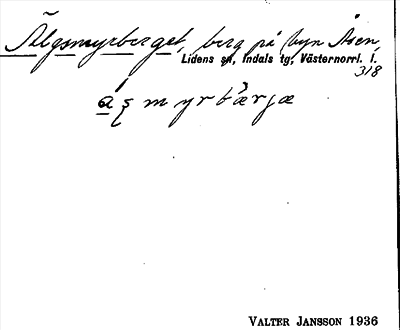 Älgsmyrberget, berg på byn Åsen,
Lidens sn, Indals tg, Västernorrl. l.
318
VALTER JANSSON 1936